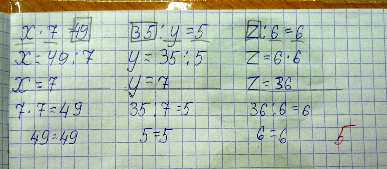 x · 7 = 49   35 : y = 5   z : 6 = 6
x = 49 : 7   y = 35 : 5   z = 6 · 6
x = 7   y = 7   z = 36
7 · 7 = 49   35 : 7 = 5   36 : 6 = 6
49 = 49   5 = 5   6 = 6   5